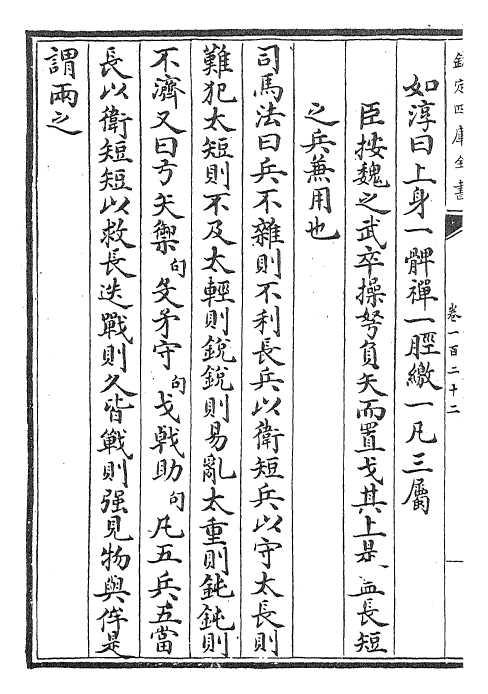 欽定四庫全書
卷一百二十二
如淳曰上身一髀禪一脛繳一凡三屬
臣按魏之武卒操弩負矢而置戈其上是亦長短
之兵兼用也
司馬法曰兵不雜則不利長兵以衛短兵以守太長則
難犯太短則不及太輕則銳銳則易亂太重則鈍鈍則
不濟又曰弓矢禦句殳矛守句戈戟助句凡五兵五當
長以衛短短以救長迭戰則久皆戰則强見物與侔是
謂兩之